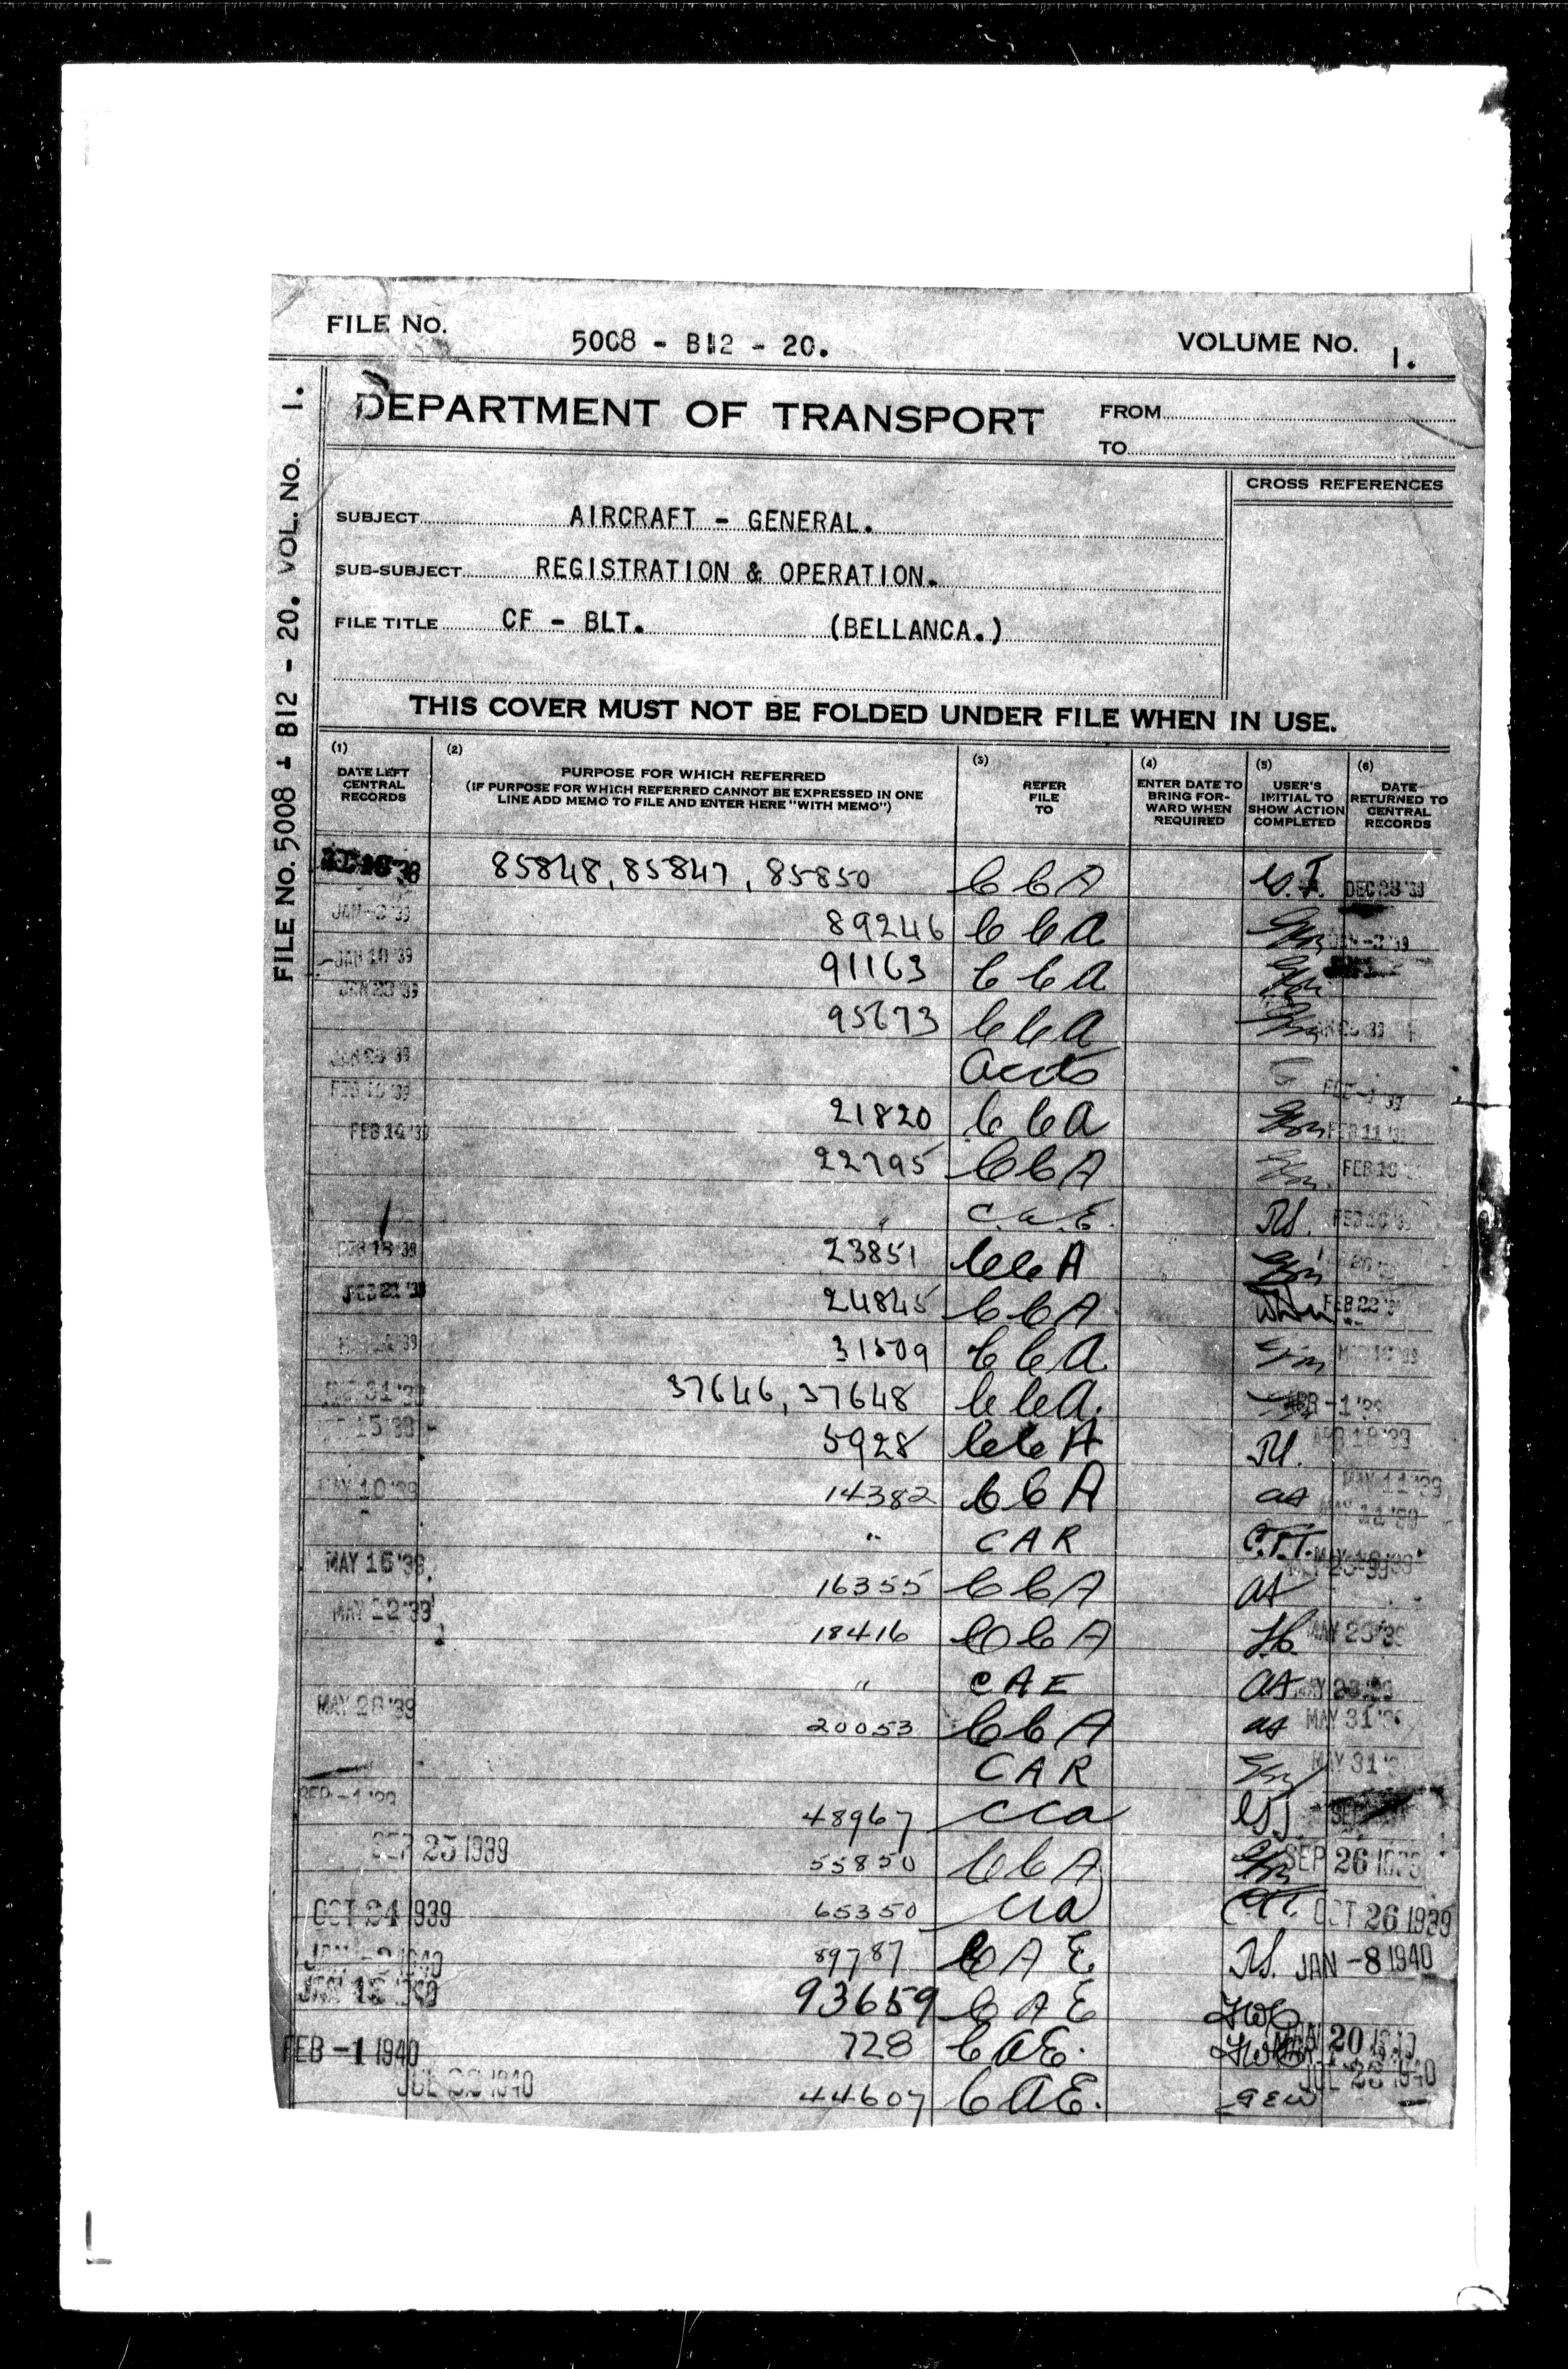 FILE NO. 5008 - B12 - 20. VOLUME NO. 1.
FILE NO. 5008 - B12 - 20. VOL. NO. 1.
DEPARTMENT OF TRANSPORT
FROM
TO
CROSS REFERENCES
SUBJECT AIRCRAFT - GENERAL.
SUB-SUBJECT REGISTRATION & OPERATION.
FILE TITLE CF - BLT. (BELLANCA.)
THIS COVER MUST NOT BE FOLDED UNDER FILE WHEN IN USE.
(1) DATE LEFT CENTRAL RECORDS
(2) PURPOSE FOR WHICH REFERRED
(IF PURPOSE FOR WHICH REFERRED CANNOT BE EXPRESSED IN ONE
LINE ADD MEMO TO FILE AND ENTER HERE "WITH MEMO")
(3) REFER FILE TO
(4) ENTER DATE TO BRING FORWARD WHEN REQUIRED
(5) USER'S INITIAL TO SHOW ACTION COMPLETED
(6) DATE RETURNED TO CENTRAL RECORDS
85848, 85847, 85850 CCA DEC 28 '38
89246 CCA
JAN 10 '39 91163 CCA
JAN 23 '39 95673 CCA
Accts
21820 CCA FEB 11 '39
FEB 14 '39 22795 CCA
" C.A.E.
FEB 18 '39 23851 CCA
FEB 21 '39 24845 CCA FEB 22 '39
31509 CCA
37646, 37648 CCA. APR -1 '39
5928 CCA
MAY 10 '39 14382 CCA as MAY 11 '39
" CAR C.F.T.
MAY 16 '39 16355 CCA as
MAY 22 '39 18416 CCA
" CAE as
MAY 28 '39 20053 CCA as MAY 31 '39
CAR MAY 31 '39
SEP -1 '39 48967 CCA
SEP 25 1939 55850 CCA SEP 26 1939
OCT 24 1939 65350 CCA OCT 26 1939
89787 CAE JAN -8 1940
93659 CAE
FEB -1 1940 728 CAE.
44607 CAE. JUL 23 1940